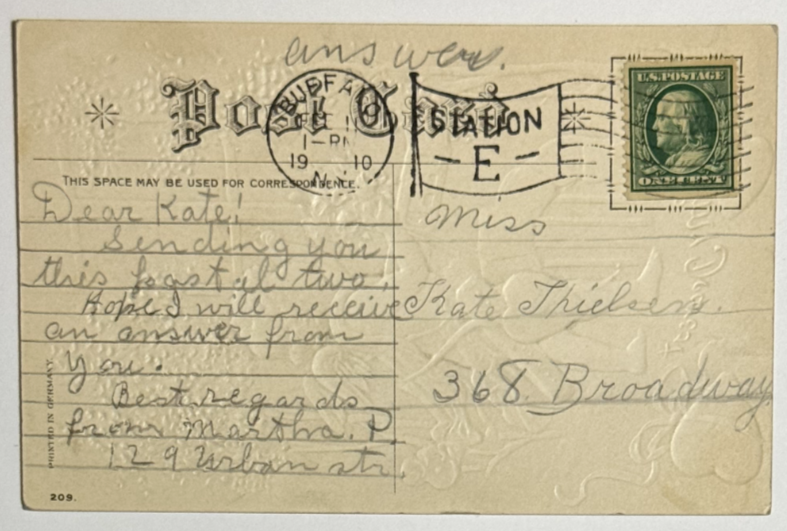 answer.
Post Card
BUFFALO
1-PM
19 10
N.Y.
STATION
E
U.S. POSTAGE
ONE CENT
THIS SPACE MAY BE USED FOR CORRESPONDENCE.
Dear Kate!
Sending you
this postal two.
Hope I will receive
an answer from
you.
Best regards
from Martha. P.
129 Urban str.
Miss
Kate Thielsen.
368. Broadway
PRINTED IN GERMANY.
209.